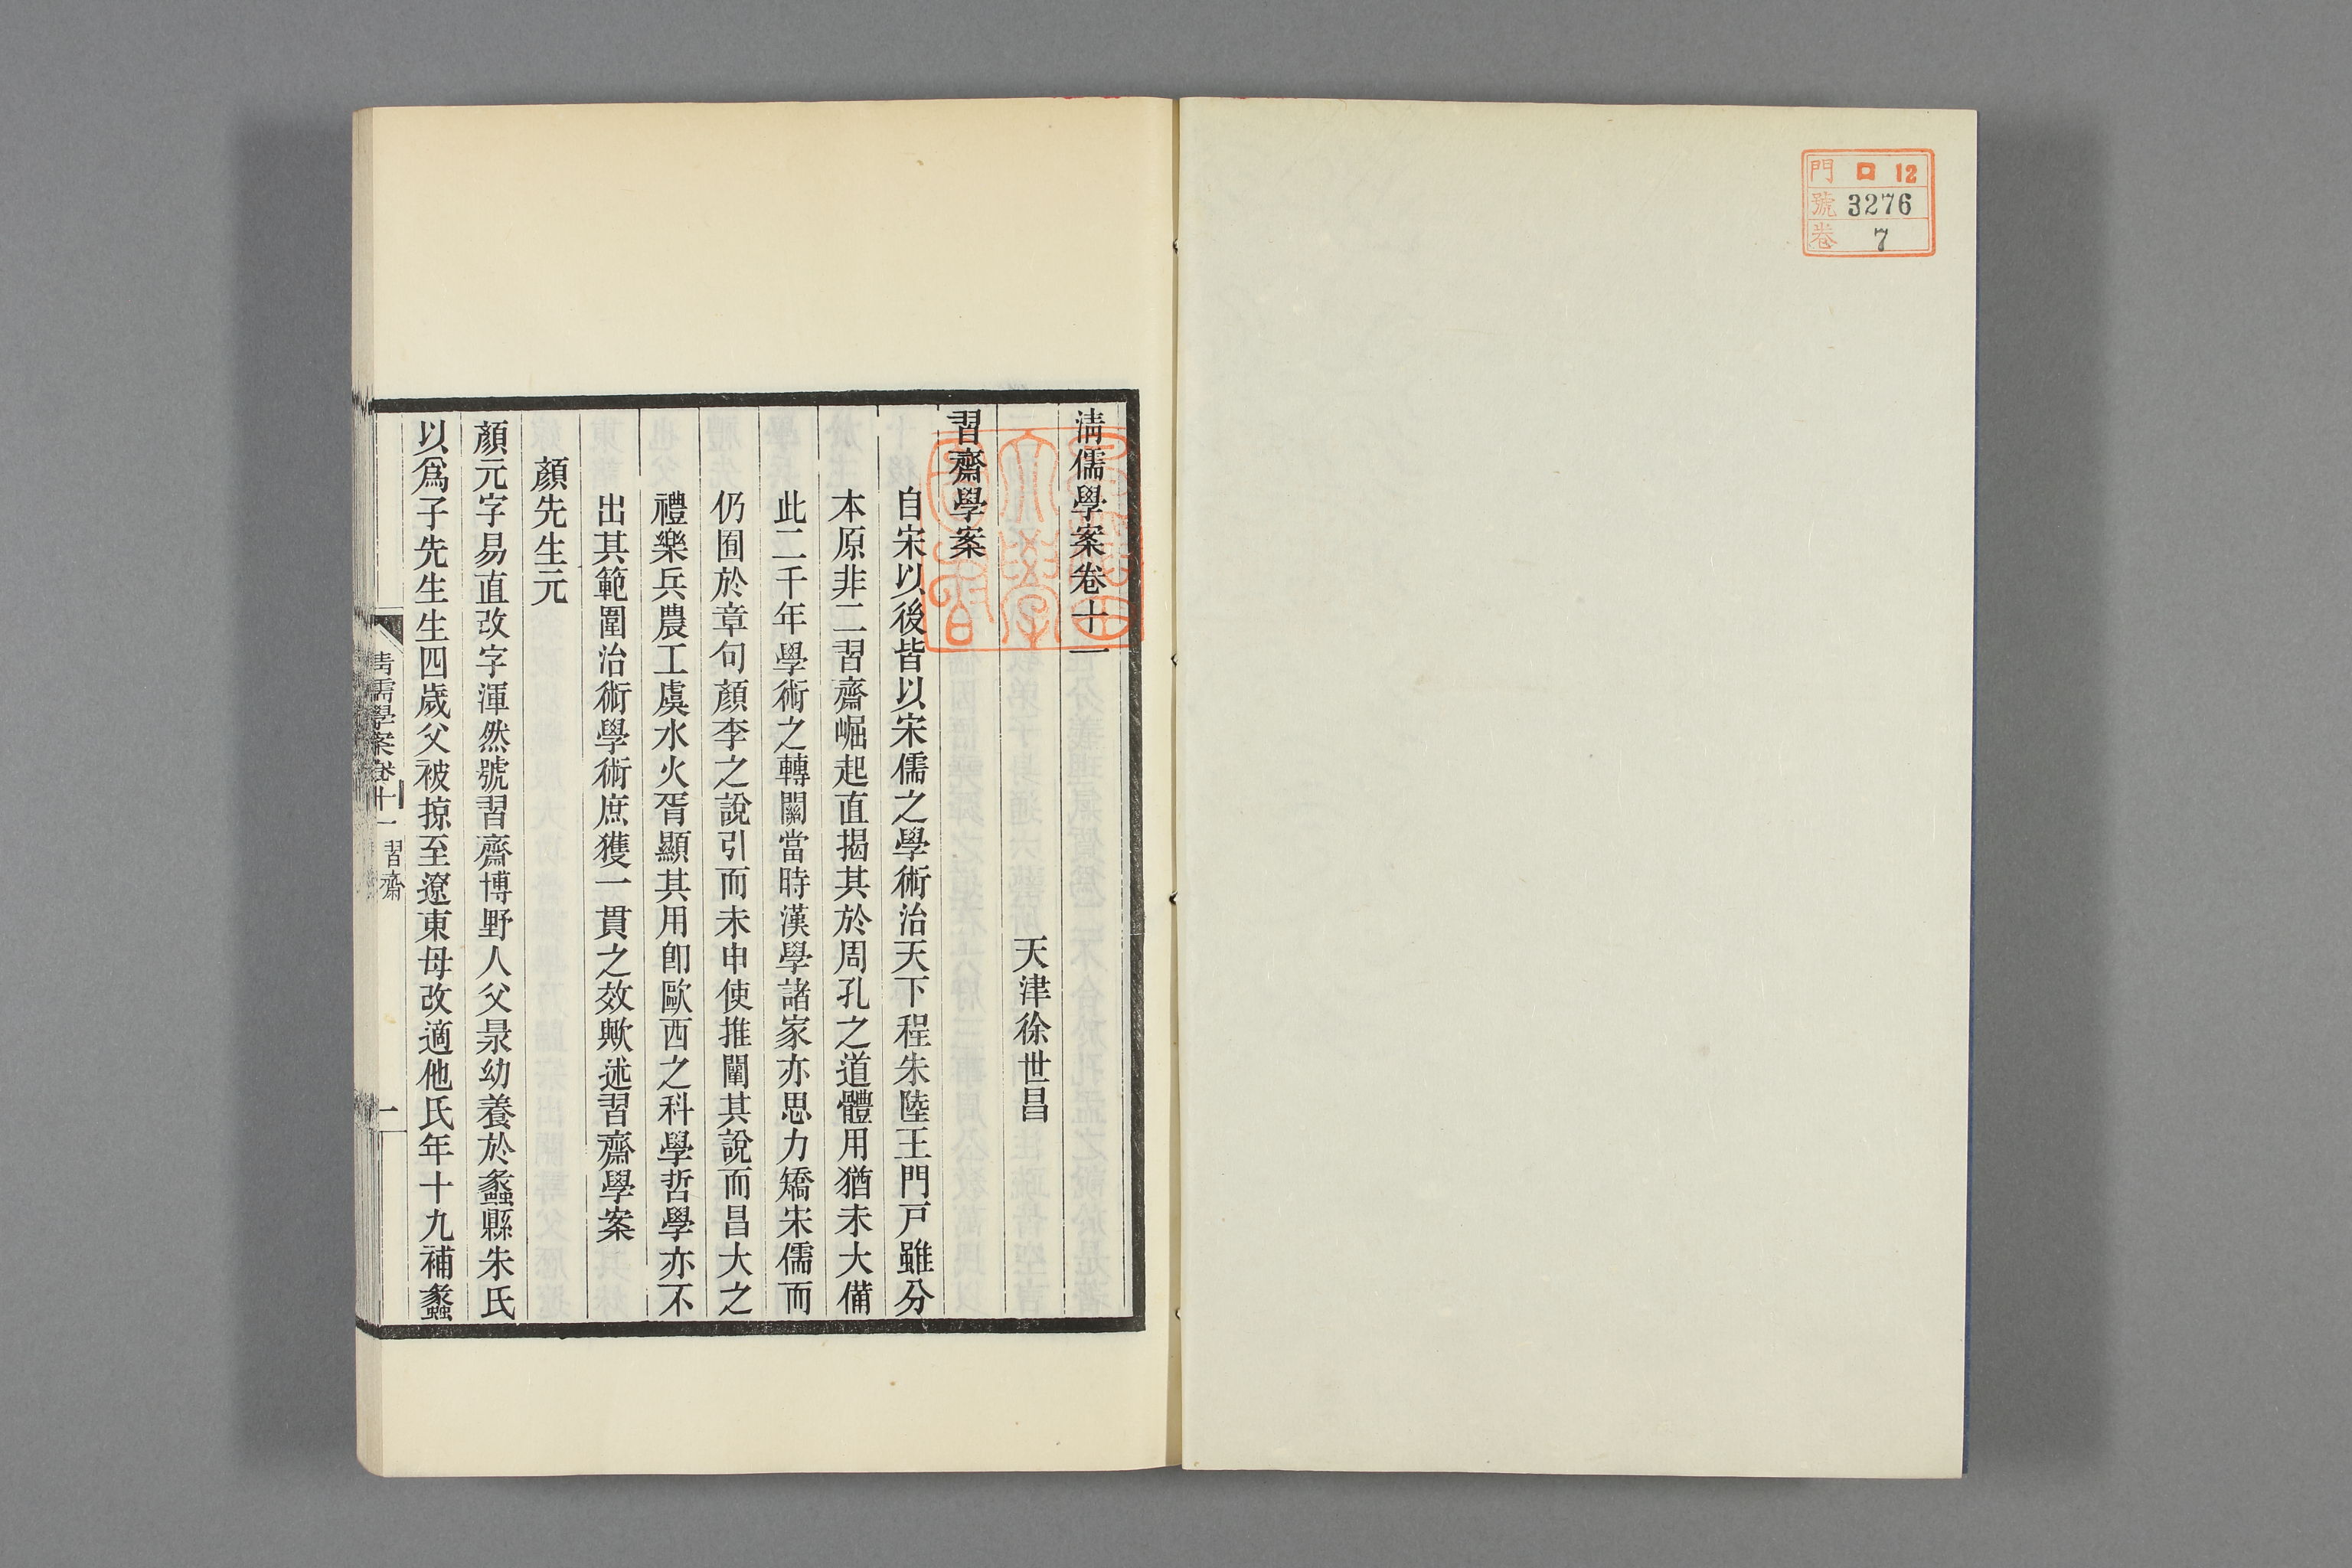 門 ロ 12
號 3276
卷 7
清儒學案卷十一
天津徐世昌
習齋學案
自宋以後皆以宋儒之學術治天下程朱陸王門戸雖分
本原非二習齋崛起直揭其於周孔之道體用猶未大備
此二千年學術之轉關當時漢學諸家亦思力矯宋儒而
仍囿於章句顏李之說引而未申使推闡其說而昌大之
禮樂兵農工虞水火胥顯其用卽歐西之科學哲學亦不
出其範圍治術學術庶獲一貫之效歟述習齋學案
顏先生元
顏元字易直改字渾然號習齋博野人父㫤幼養於蠡縣朱氏
以爲子先生生四歲父被掠至遼東母改適他氏年十九補蠡
清儒學案卷十一 習齋 一